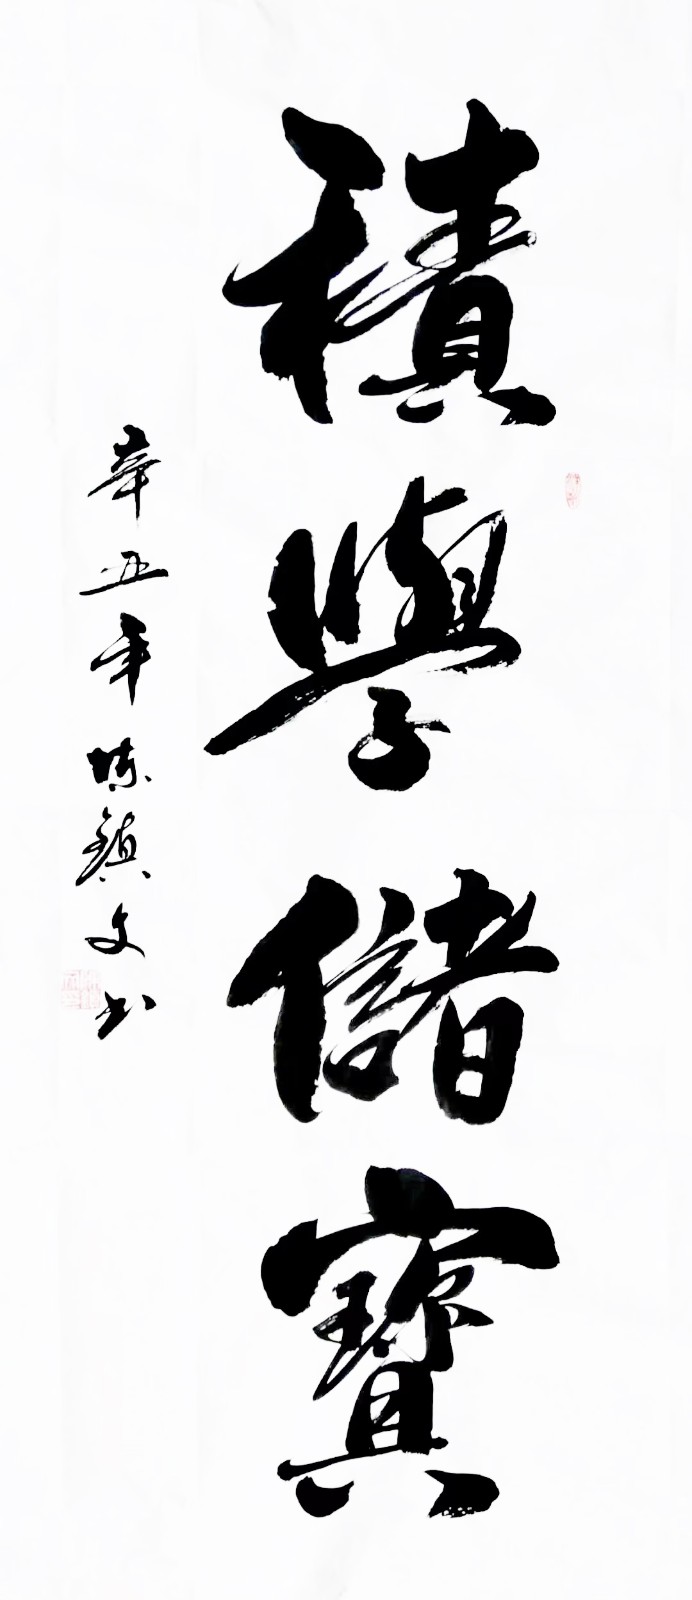 積學儲寶
辛丑年陳鎮文书